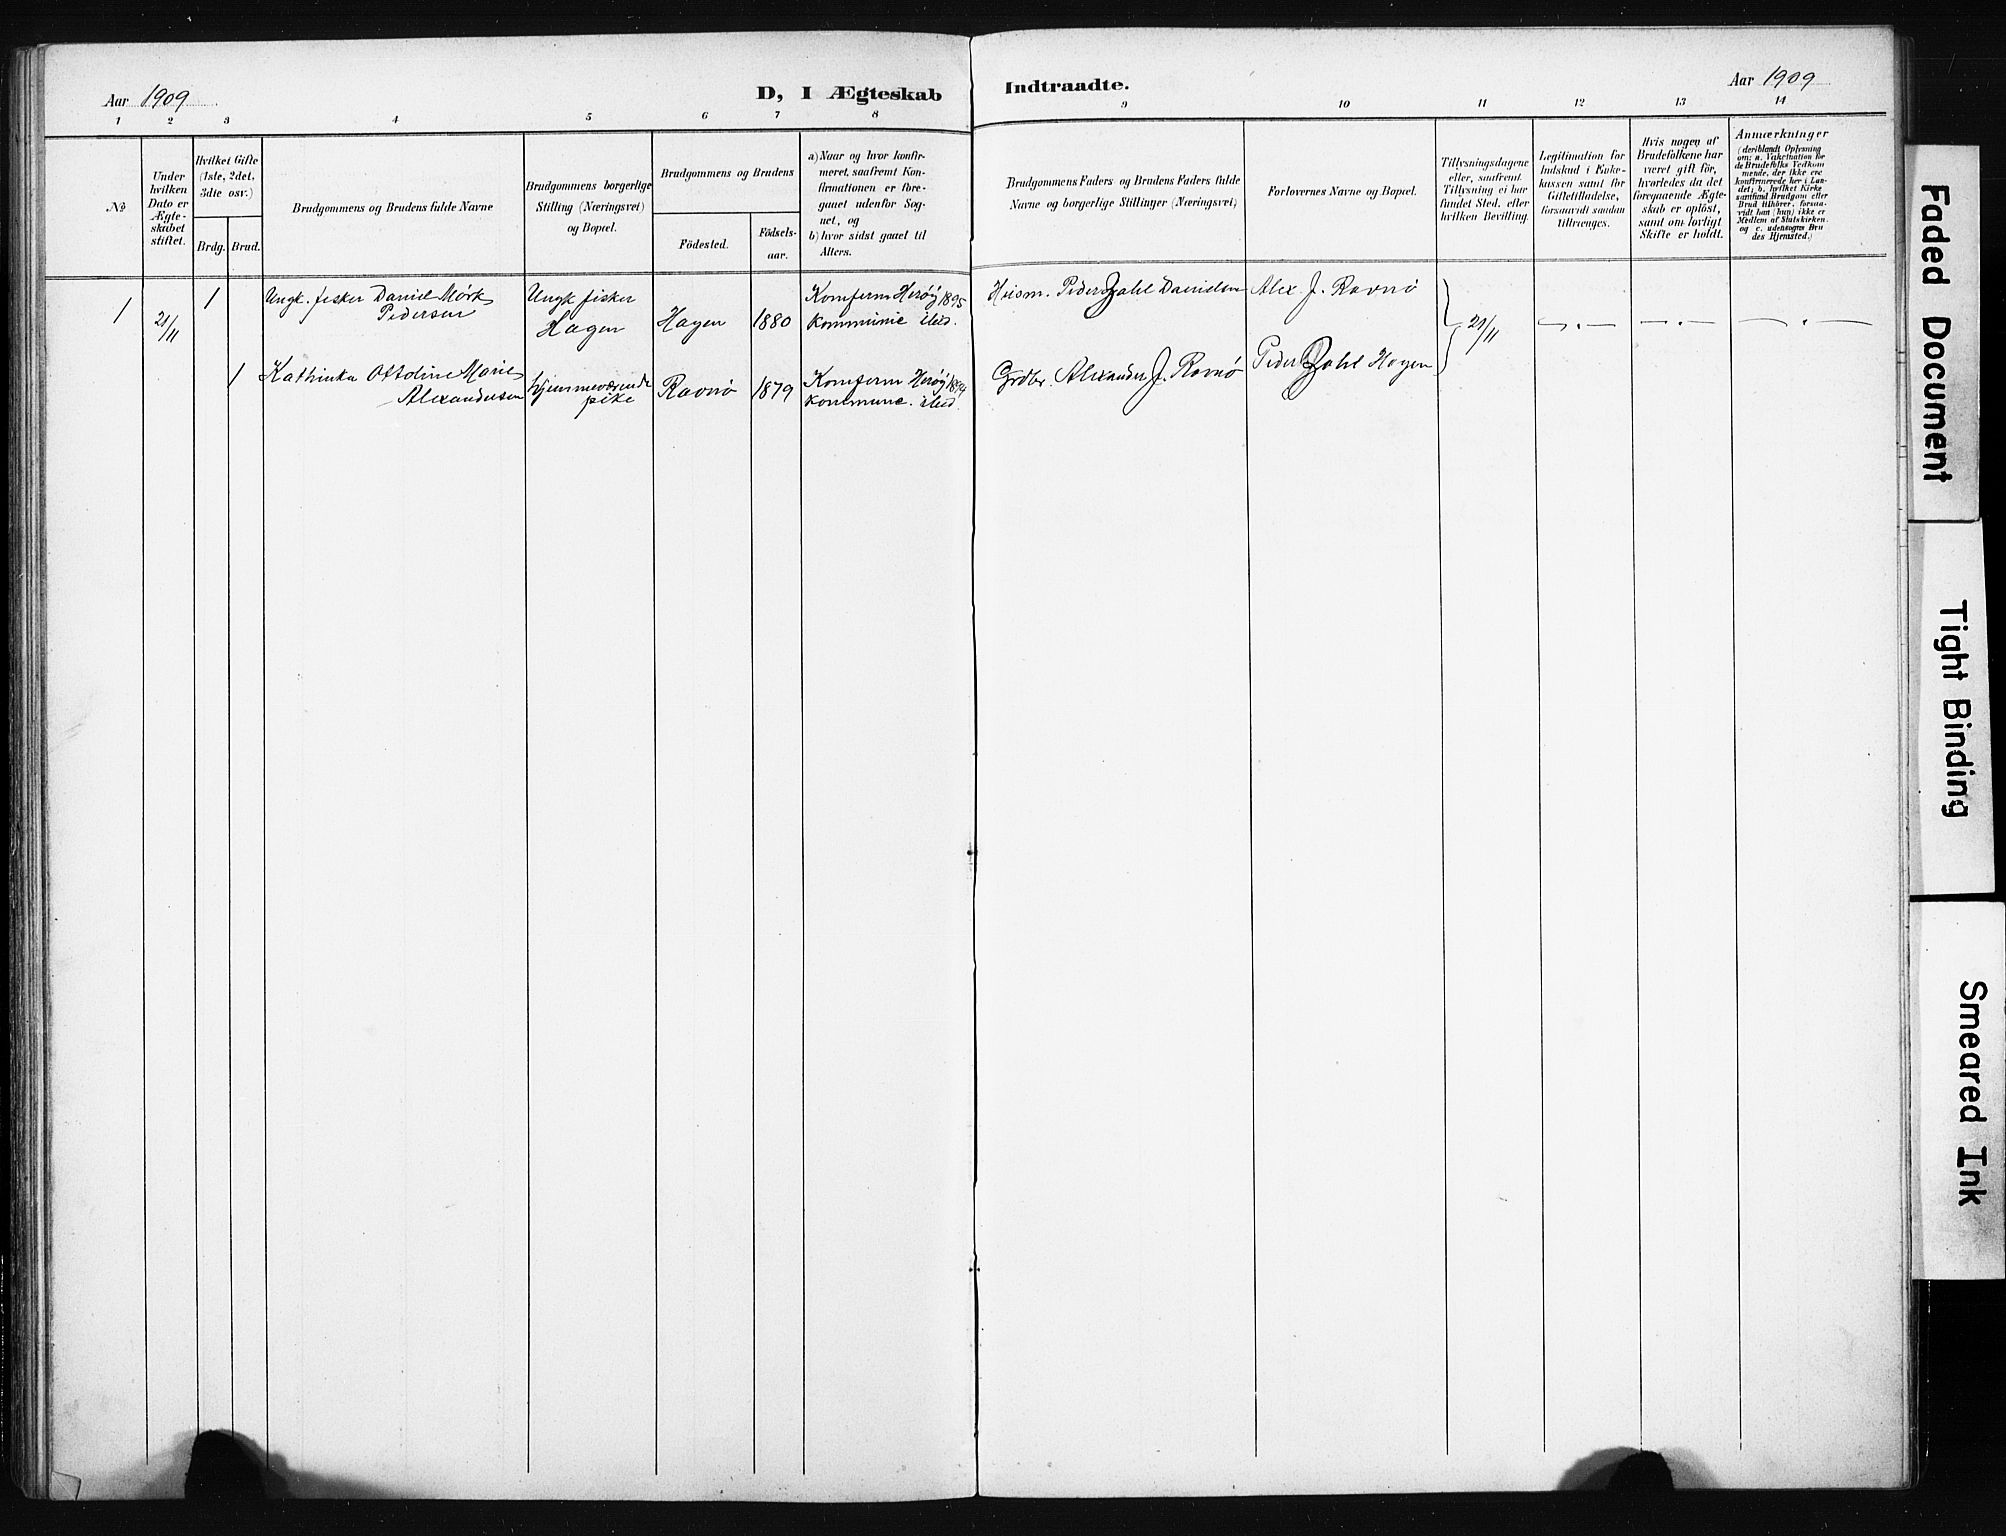 Aar 1909
D, I Ægteskab
Indtraadte.
Aar 1909
1 2 3 4 5 6 7 8 9 10 11 12 13 14
№
Under
hvilken
Dato er
Ægte-
skabet
stiftet.
Hvilket Gifte
(1ste, 2det,
3die osv.)
Brdg.
Brud.
Brudgommens og Brudens fulde Navne
Brudgommens borgerlige
Stilling (Næringsvei)
og Bopæl.
Brudgommens og Brudens
Födested.
Födsels-
aar.
a) Naar og hvor konfir-
meret, saafremt Kon-
firmationen er fore-
gaaet udenfor Sog-
net, og
b) hvor sidst gaaet til
Alters.
Brudgommens Faders og Brudens Faders fulde
Navne og borgerlige Stillinger (Næringsvei)
Forlovernes Navne og Bopæl.
Tillysningsdagene
eller, saafremt
Tillysning ei har
fundet Sted, efter
hvilken Bevilling.
Legitimation for
Indskud i Enke-
kassen samt for
Giftetilladelse,
forsaavidt saadan
tiltrænges.
Hvis nogen af
Brudefolkene har
været gift för,
hvorledes da det
foregaaende Ægte-
skab er oplöst,
samt om lovligt
Skifte er holdt.
Anmærkninger
(deriblandt Oplysning
om: a. Vakcination for
de Brudefolks Vedkom
mende, der ikke ere
konfirmerede her i Lan-
det; b. hvilket Kirke
samfund Brudgom eller
Brud tilhörer, forsaa-
vidt han (hun) ikke er
Medlem af Statskirken.
og c. udensogns Bru
des Hjemsted.)
1
21/11
1
Ungk. fisker Daniel Mørk
Pedersen
Ungk fisker
Hagen
Hagen
1880
Konferm Herøy 1895
Kommunic. i led.
Husm. Peder Dahl Danielsen
Alex J. Ravnø
21/11
1
Kathinka Ottoline Marie
Alexandersen
hjemmeværende
pike
Ravnø
1879
Konferm Herøy 1894
kommunc. i led.
Grdbr. Alexander J. Ravnø
Peder Dahl Hagen
Faded Document
Tight Binding
Smeared Ink